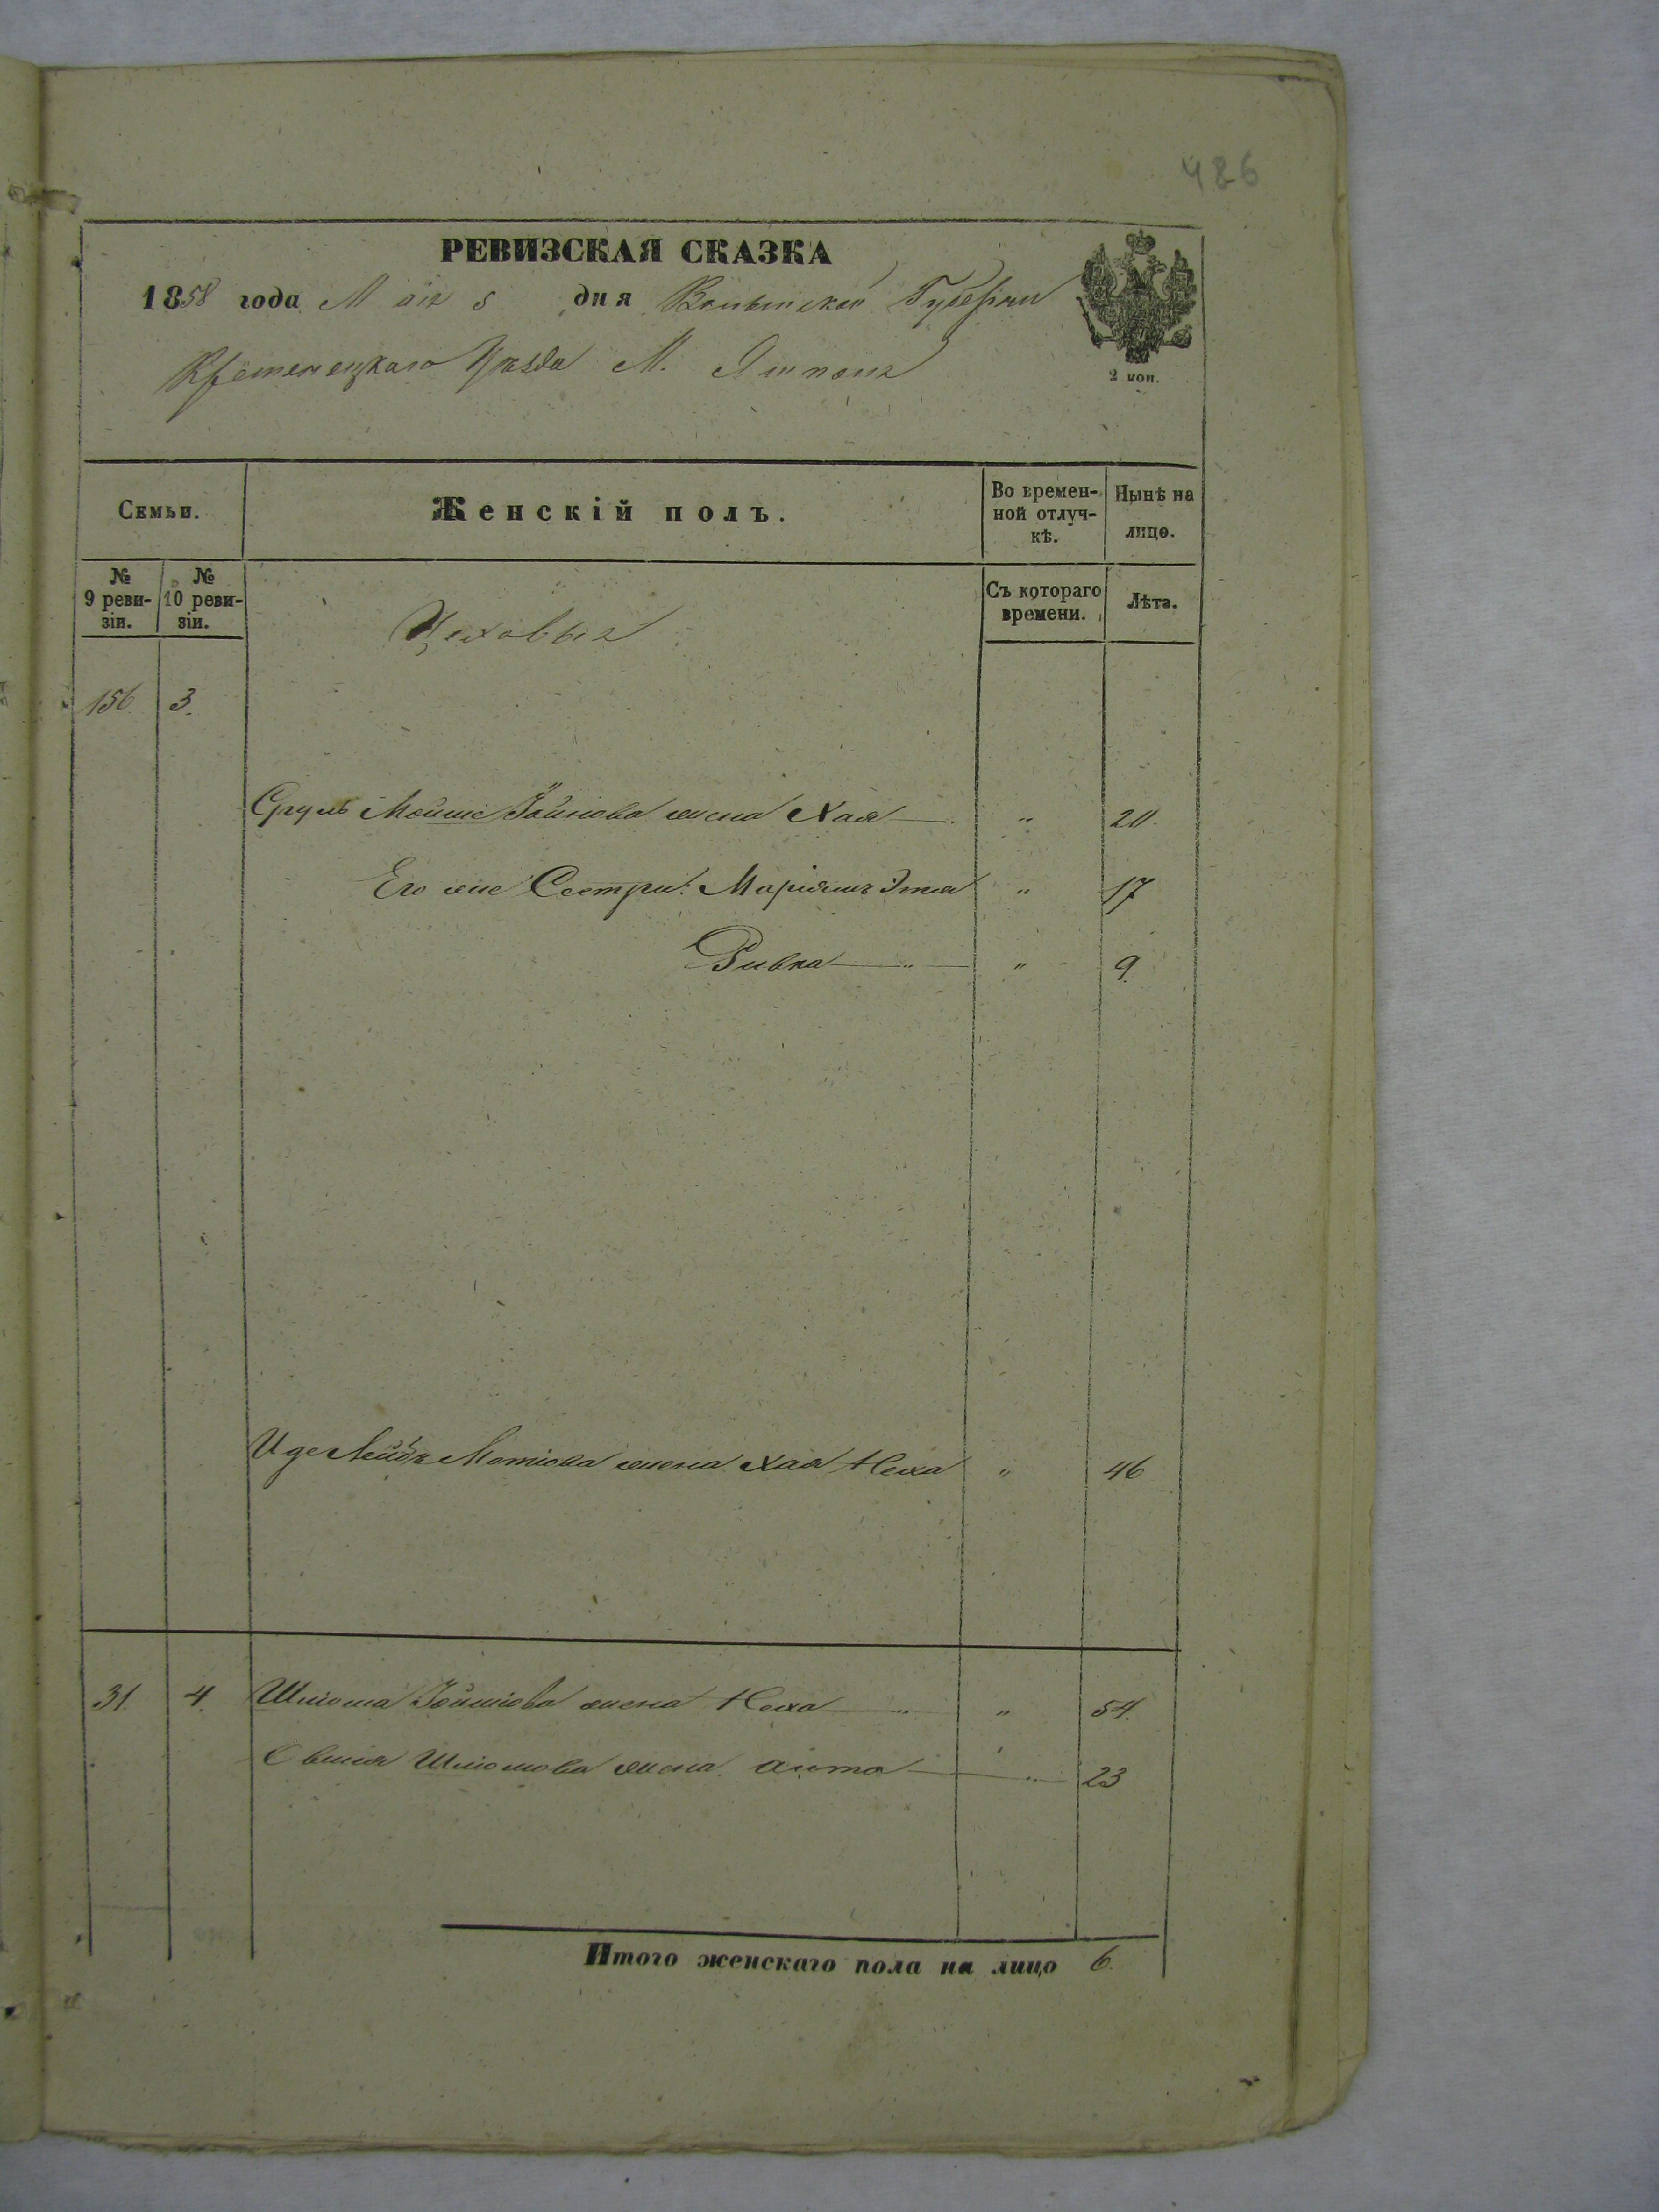 486
РЕВИЗСКАЯ СКАЗКА
1858 года Маія 8 дня Волынской Губерніи
Кременецкаго Уѣзда М. Ямполя
2 коп.
Семьи. Женскій полъ. Во времен-ной отлуч-кѣ. Нынѣ на лицо.
№ 9 реви-зіи. № 10 реви-зіи. Съ котораго времени. Лѣта.
Цеховыя
156. 3.
Сруль Мойше жена Хая — " 20.
Его же Сестры: Маріямъ Этля " 17
Ривка — " — " 9.
жена Хая Неха " 46
31. 4. Шліома жена Неха — " " 54.
Овшія Шліомова жена — " 23
Итого женскаго пола на лицо 6.